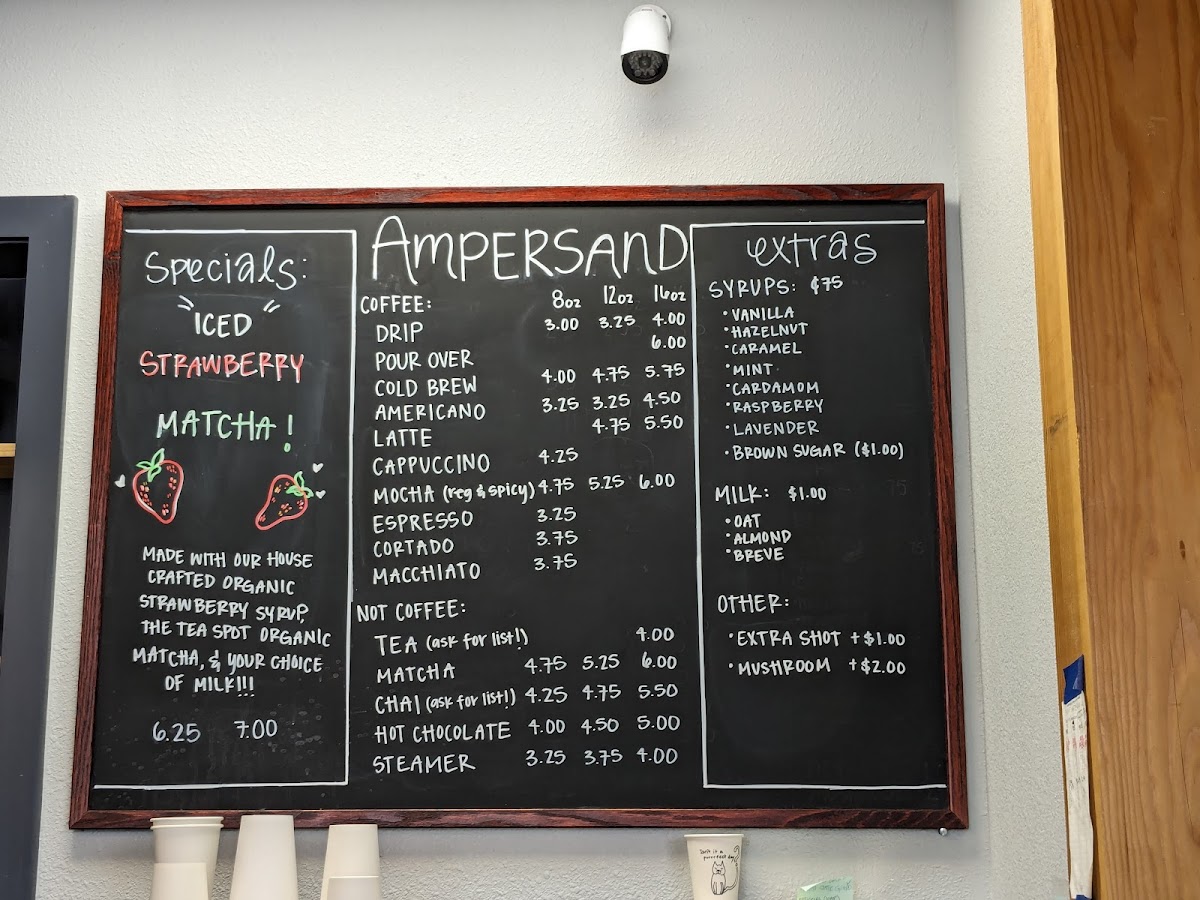 Specials:
ICED
STRAWBERRY
MATCHA!
MADE WITH OUR HOUSE
CRAFTED ORGANIC
STRAWBERRY SYRUP,
THE TEA SPOT ORGANIC
MATCHA, & YOUR CHOICE
OF MILK!!!
6.25 7.00
AMPERSAND
COFFEE: 8oz 12oz 16oz
DRIP 3.00 3.25 4.00
POUR OVER 6.00
COLD BREW 4.00 4.75 5.75
AMERICANO 3.25 3.25 4.50
LATTE 4.75 5.50
CAPPUCCINO 4.25
MOCHA (reg & spicy) 4.75 5.25 6.00
ESPRESSO 3.25
CORTADO 3.75
MACCHIATO 3.75
NOT COFFEE:
TEA (ask for list!) 4.00
MATCHA 4.75 5.25 6.00
CHAI (ask for list!) 4.25 4.75 5.50
HOT CHOCOLATE 4.00 4.50 5.00
STEAMER 3.25 3.75 4.00
extras
SYRUPS: ¢75
• VANILLA
• HAZELNUT
• CARAMEL
• MINT
• CARDAMOM
• RASPBERRY
• LAVENDER
• BROWN SUGAR ($1.00)
MILK: $1.00
• OAT
• ALMOND
• BREVE
OTHER:
• EXTRA SHOT +$1.00
• MUSHROOM +$2.00